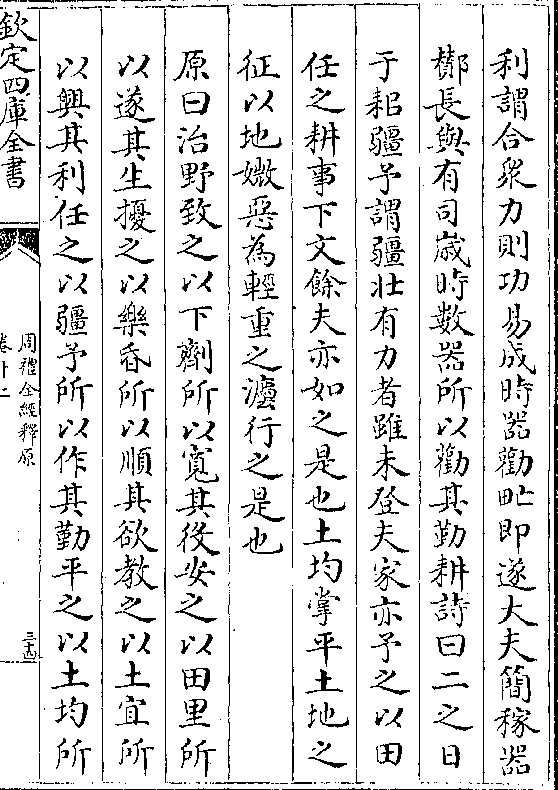 利謂合衆力則功易成時器勸甿即遂大夫簡稼器
酇長與有司嵗時數器所以勸其勤耕詩曰二之日
于耜疆予謂疆壯有力者雖未登夫家亦予之以田
任之耕事下文餘夫亦如之是也土均掌平土地之
征以地媺惡為輕重之灋行之是也
原曰治野致之以下劑所以寛其役安之以田里所
以遂其生擾之以樂昏所以順其欲教之以土宜所
以興其利任之以疆予所以作其勤平之以土均所
欽定四庫全書
周禮全經釋原
卷十二
三十四